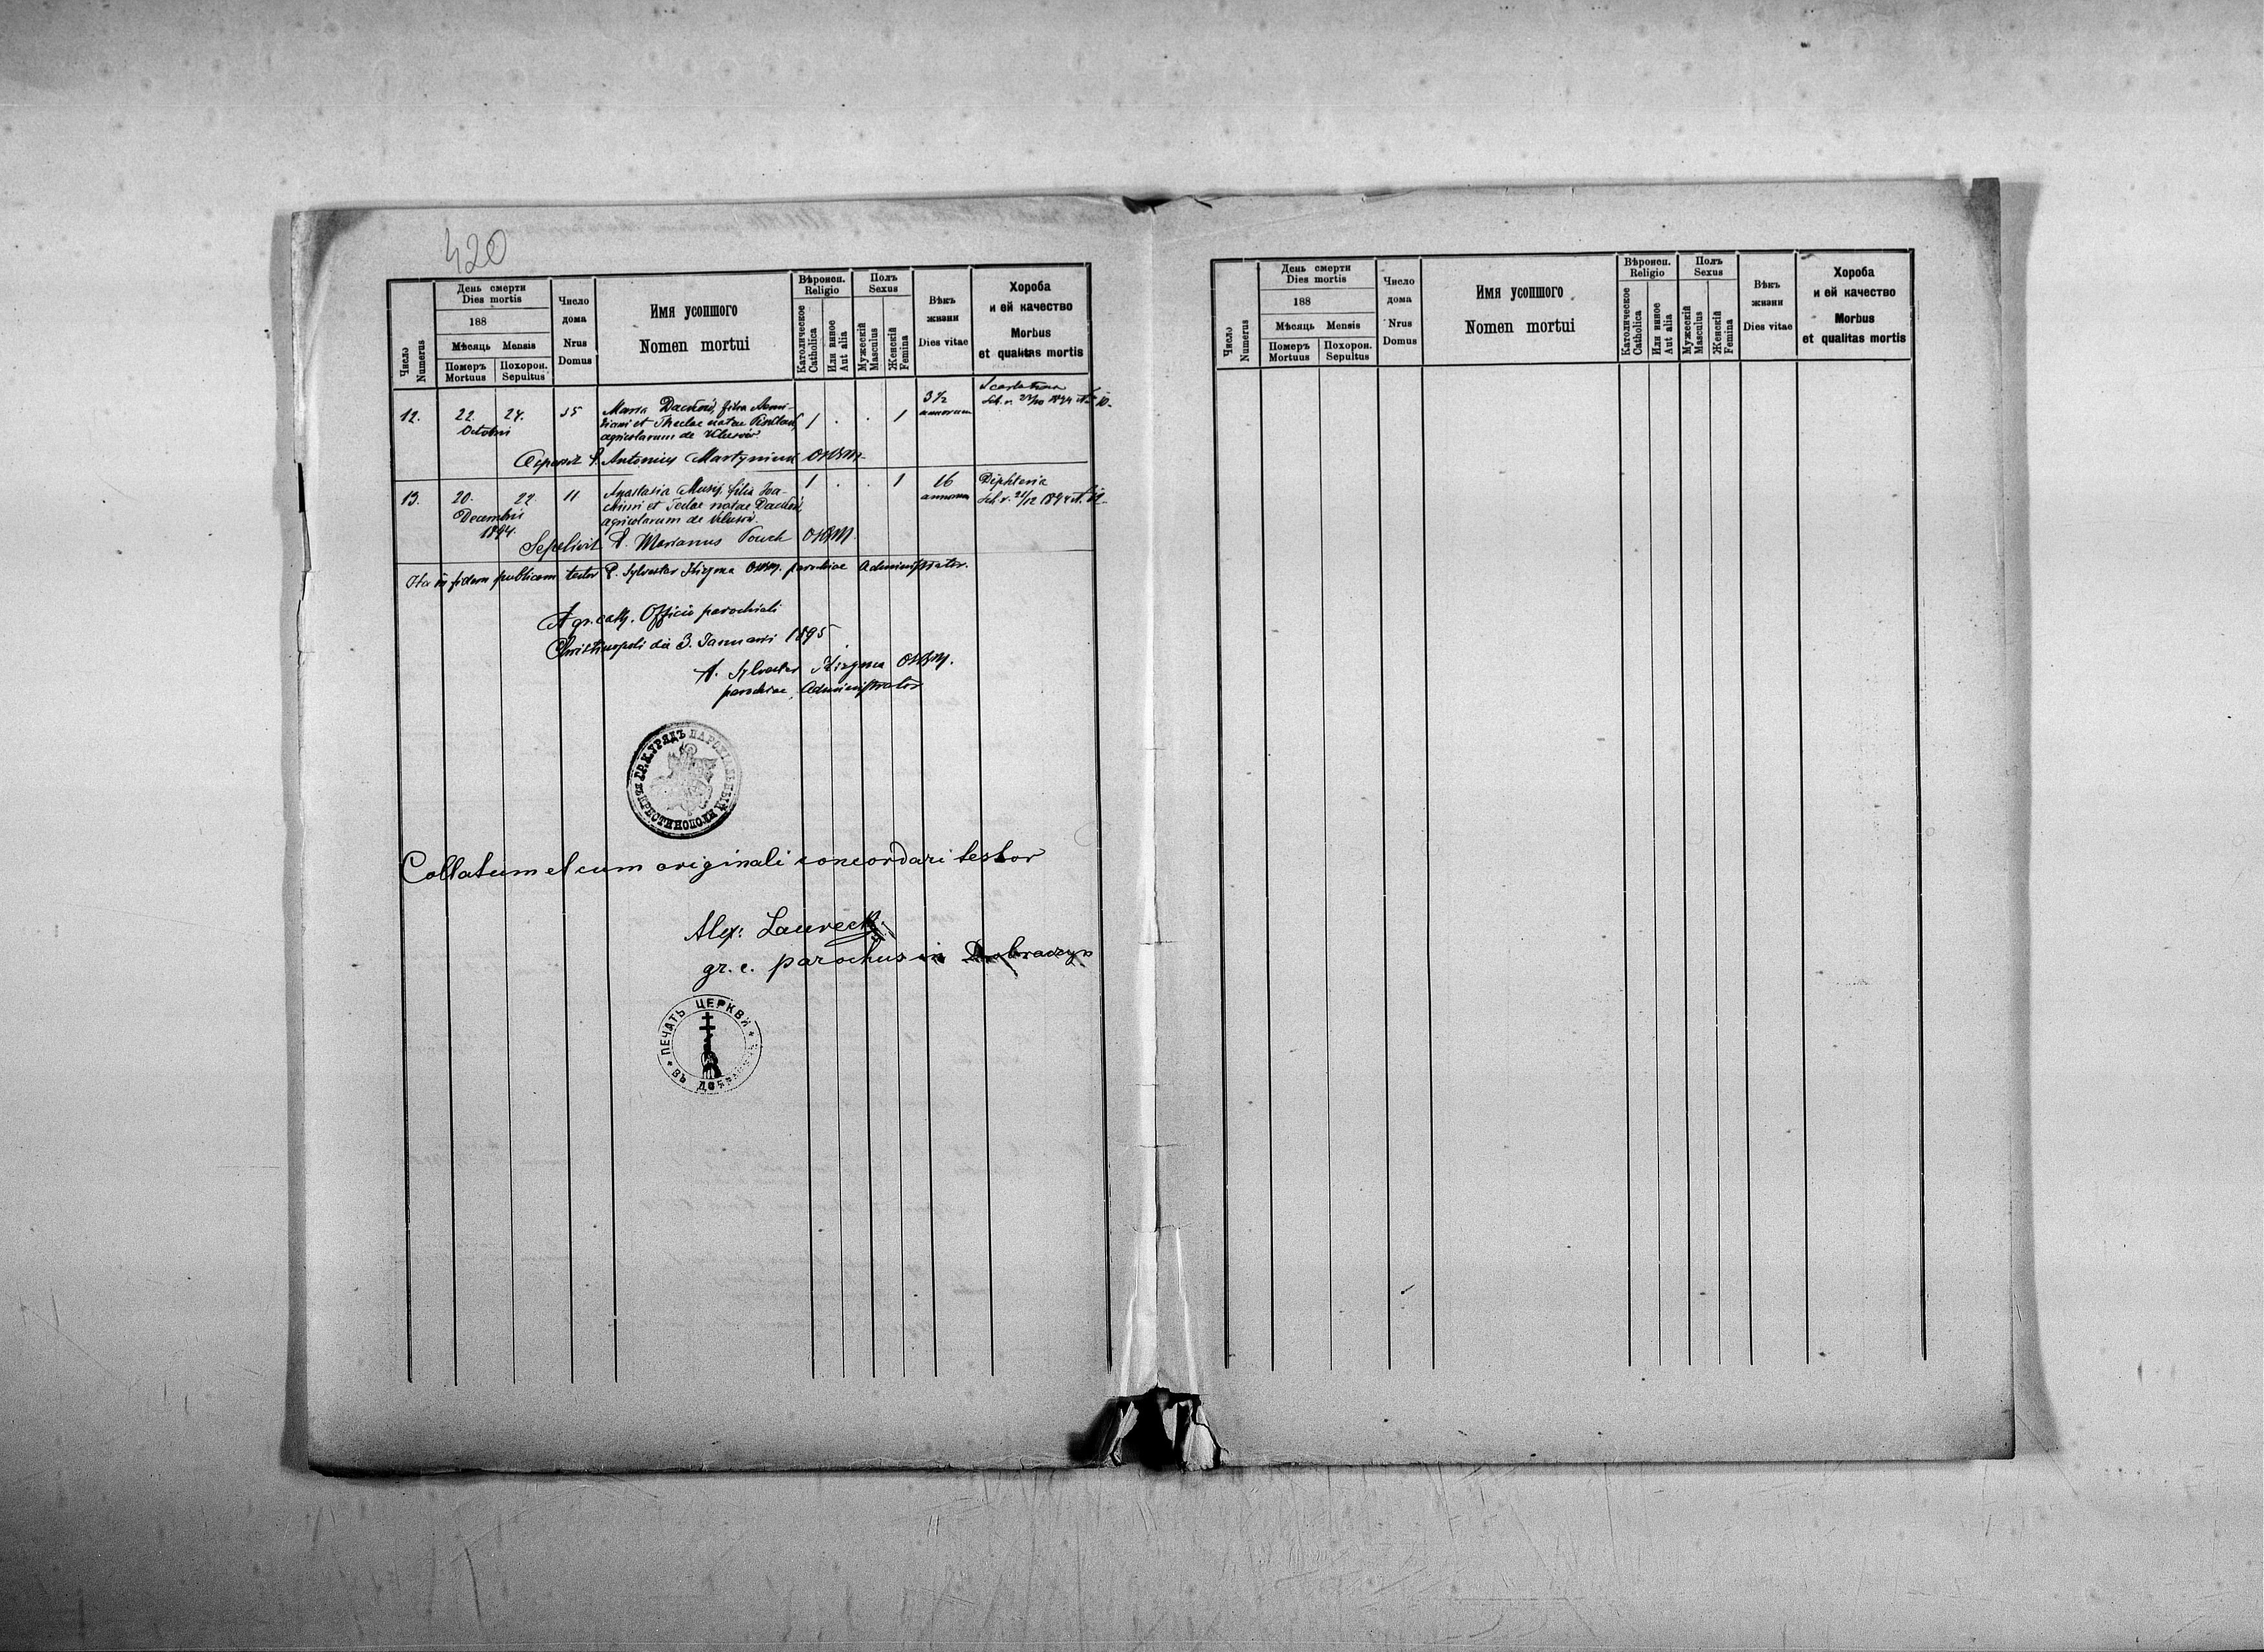 420
Число Numerus
День смерти
Dies mortis
188
Мѣсяць Mensis
Померъ Mortuus
Похорон. Sepultus
Число дома
Nrus Domus
Имя усопшого
Nomen mortui
Вѣроисп.
Religio
Католическое Catholica
Или иное Aut alia
Полъ
Sexus
Мужескій Masculus
Женскій Femina
Вѣкъ жизни
Dies vitae
Хороба
и ей качество
Morbus
et qualitas mortis
12. 22. 24. 35 Maria filia 1 . . 1 3½ Scarlatina
Octobris et Theclae natae annorum
agricolarum de
P. Antonius Martyniuk OSBM.
13. 20. 22. 11 Anastasia filia Joa- 1 . . 1 16 Diphteria
Decembris chimi et Teclae natae annorum
1894. agricolarum de
Sepelivit P. Marianus OSBM.
Ita in fidem publicam testor P. Sylvester OSBM. parochiae Administrator.
A gr. cath. Officio parochiali
Christinopoli die 3. Januarii 1895
P. Sylvester OSBM.
parochiae Administrator
ГР.К.УРЯДЪ ПАРОХІАЛЬНЫЙ ВЪ КРИСТИНОПОЛИ
Collatum et cum originali concordari testor
Alex: Laurecki
gr. c. parochus in Dobraczyn
ПЕЧАТЬ ЦЕРКВИ
ВЪ
Число Numerus
День смерти
Dies mortis
188
Мѣсяць Mensis
Померъ Mortuus
Похорон. Sepultus
Число дома
Nrus Domus
Имя усопшого
Nomen mortui
Вѣроисп.
Religio
Католическое Catholica
Или иное Aut alia
Полъ
Sexus
Мужескій Masculus
Женскій Femina
Вѣкъ жизни
Dies vitae
Хороба
и ей качество
Morbus
et qualitas mortis